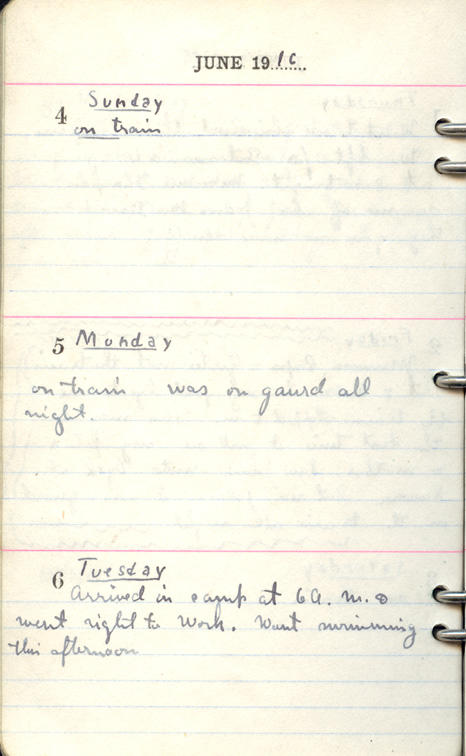 JUNE 1916
4 Sunday
on train
5 Monday
on train was on gaurd all
night.
6 Tuesday
Arrived in camp at 6 A. M. &
went right to work. Went swimming
this afternoon